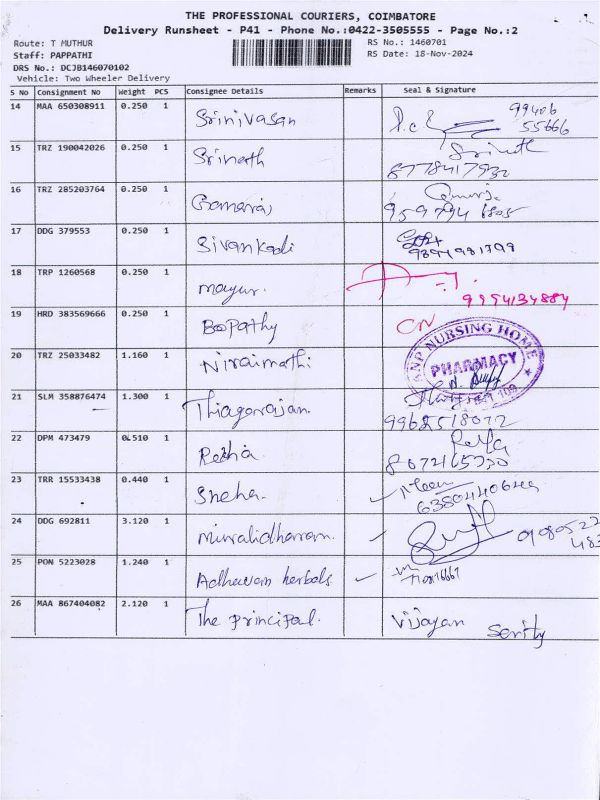 THE PROFESSIONAL COURIERS, COIMBATORE
Delivery Runsheet - P41 - Phone No.:0422-3505555 - Page No.:2
Route: T MUTHUR
RS No.: 1460701
Staff: PAPPATHI
RS Date: 18-Nov-2024
DRS No.: DCJB146070102
Vehicle: Two Wheeler Delivery
S No Consignment No Weight PCS Consignee Details Remarks Seal & Signature
14 MAA 650308911 0.250 1 Srinivasan 99406
55666
15 TRZ 190042026 0.250 1 Srinath Srinath
8778417932
16 TRZ 285203764 0.250 1
959794 6805
17 DDG 379553 0.250 1 Sivankadi
9894981799
18 TRP 1260568 0.250 1 mayur.
9994134884
19 HRD 383569666 0.250 1 Boopathy CN
20 TRZ 25033482 1.160 1 Niraimathi
ANP NURSING HOME
PHARMACY
21 SLM 358876474 1.300 1 Thiagarajan.
9962518072
22 DPM 473479 0.510 1 Retha Retha
8072165330
23 TRR 15533438 0.440 1 Sneha.
24 DDG 692811 3.120 1 Muralidharan.
25 PON 5223028 1.240 1 Adhavan herbals
26 MAA 867404082 2.120 1 The principal. Vijayan